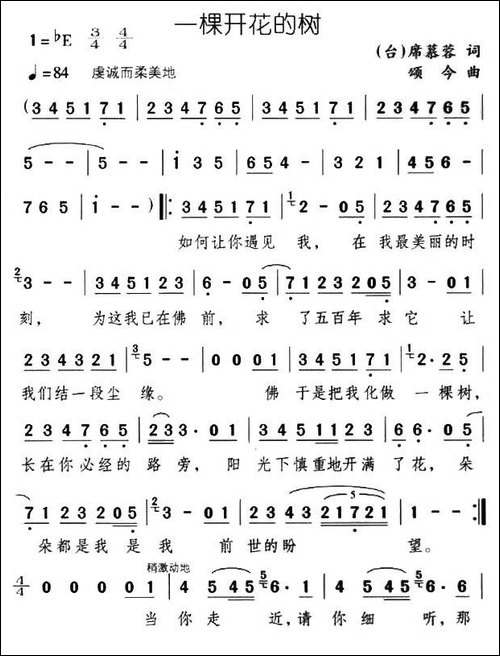 一棵开花的树
1=♭E 3/4 4/4
(台)席慕蓉 词
♩=84 虔诚而柔美地
颂今 曲
(3 4 5 1 7 1 | 2 3 4 7 6 5 | 3 4 5 1 7 1 | 2 3 4 7 6 5 |
5 - - | 5 - - | i 3 5 | 6 5 4 - | 3 2 1 | 4 5 6 - |
7 6 5 | i - - ) ‖: 3 4 5 1 7 1 | 1/七 2 - 0 5 | 2 3 4 7 6 5 |
如何让你遇见 我, 在 我最美丽的时
2/七 3 - - | 3 4 5 1 2 3 | 6 - 0 5 | 7 1 2 3 2 0 5 | 3 - 0 1 |
刻, 为这我已在佛 前, 求 了五百年 求它 让
2 3 4 3 2 1 | 3/七 5 - - | 0 0 0 1 | 3 4 5 1 7 1 | 1/七 2 · 2 5 |
我们结一段尘 缘。 佛 于是把我化做 一棵树,
2 3 4 7 6 5 | 2 3 3 · 0 1 | 3 4 5 1 1 1 | 6 6 · 0 5 |
长在你必经的 路 旁, 阳 光下慎重地开满 了花, 朵
7 1 2 3 2 0 5 | 2/七 3 - 0 1 | 2 3 2 1 7 2 1 | 1 - - :‖
朵都是我 是 我 前 世的盼 望。
稍激动地
4/4 0 0 0 0 1 | 4 5 4 5 5/七 6 · 1 | 4 5 4 5 5/七 6 · 6 |
当 你 走 近,请 你 细 听,那